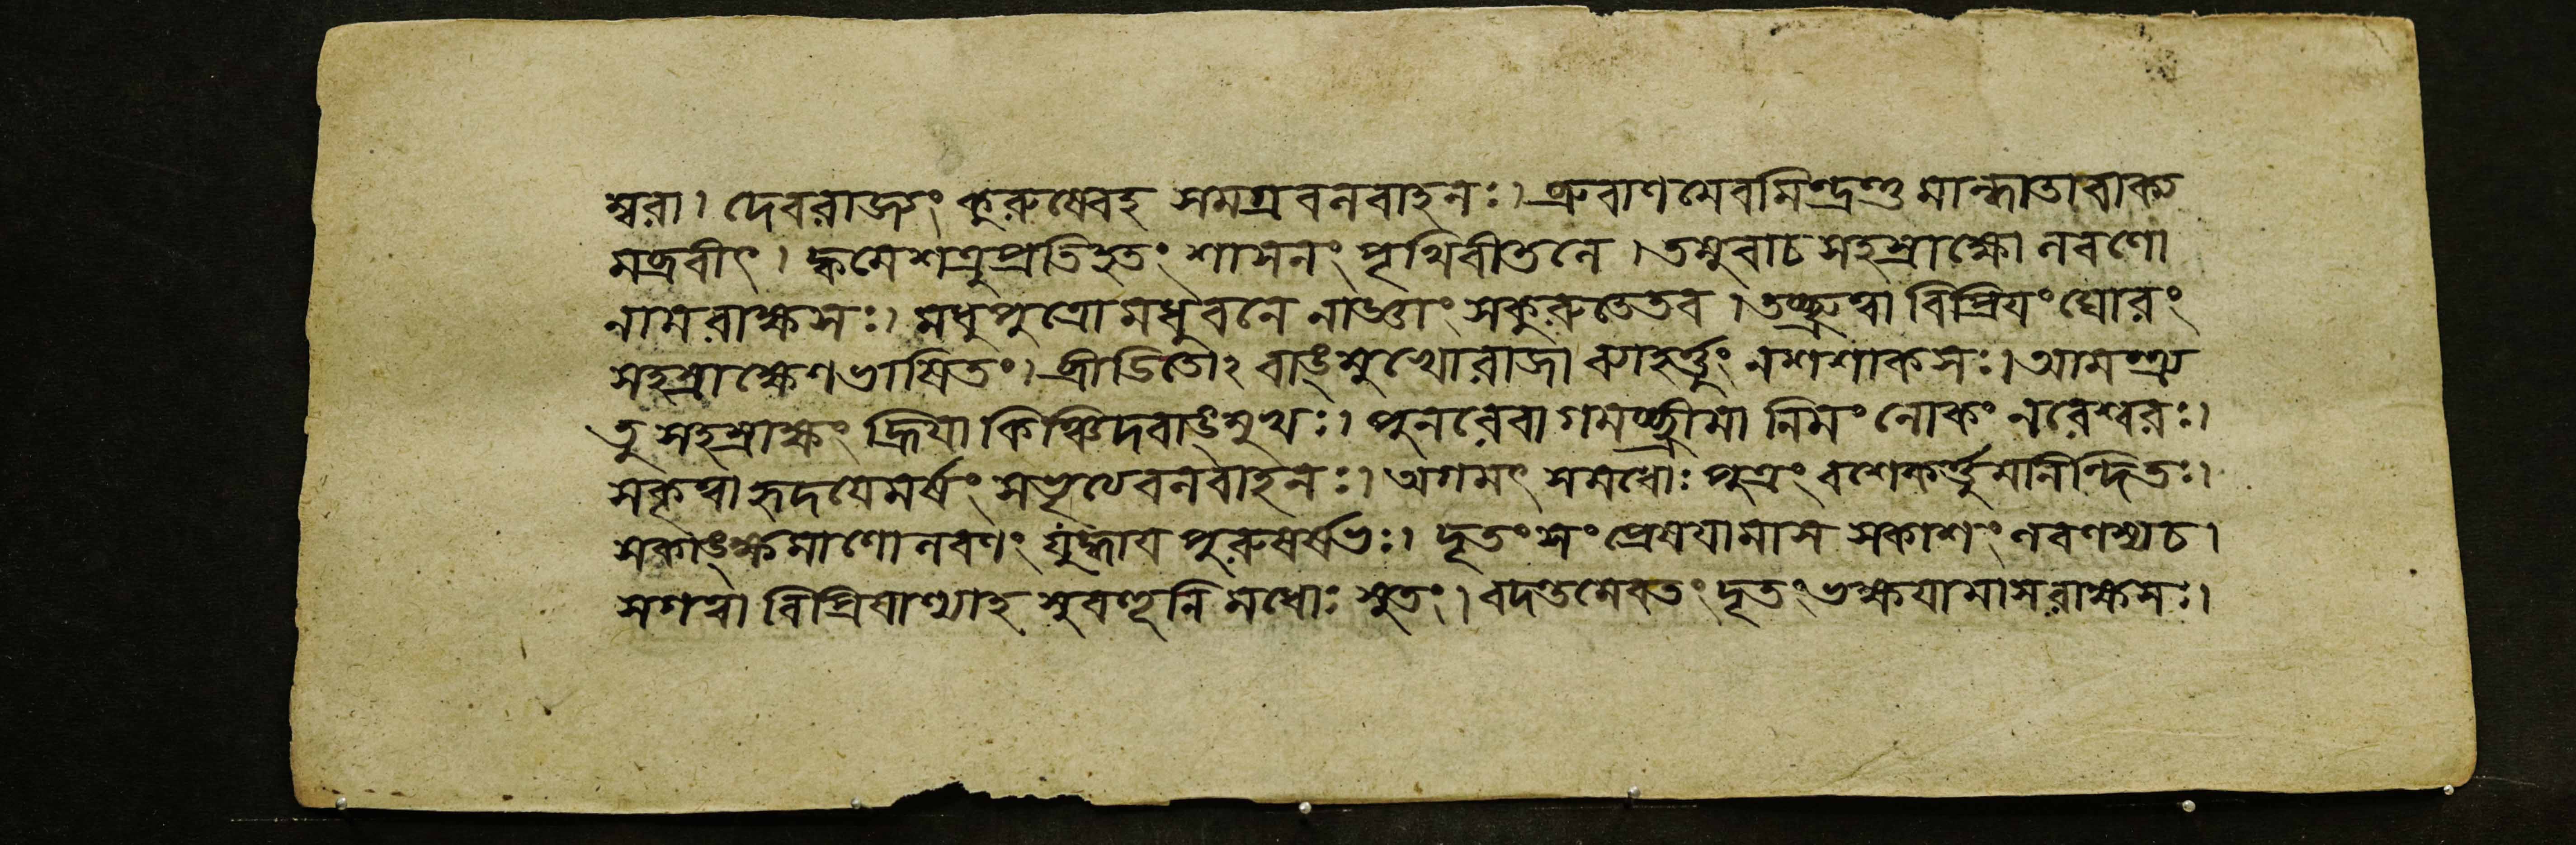 শ্বরা। দেবরাজ্যং কুরুষ্বেবহ সমগ্রবলবাহনঃ। ব্রুবাণমেবমিন্দ্রন্তু মান্ধাতাবাক্য
মব্রবীৎ। ক্কমেশক্রপ্রতিহতং শাসনং পৃথিবীতলে। তমুবাচসহস্রাক্ষো লবণো
নামরাক্ষসঃ। মধুপুত্রোমধুবনে নাজ্ঞাং সকুরুতেতব। তচ্ছ্রুত্বা বিপ্রিয়ংঘোরং
সহস্রাক্ষেণভাষিতং। ব্রীডিতোঽবাঙ্মুখোরাজা ব্যাহর্ত্তুং নশশাকসঃ। আমন্ত্র্য
তু সহস্রাক্ষং হ্রিয়া কিঞ্চিদবাঙ্মুখঃ। পুনরেবাগমচ্ছ্রীমা নিমং লোকং নরেশ্বরঃ।
সকৃত্বা হৃদয়েমর্ষং সভৃত্যবলবাহনঃ। অগমৎ সমধোঃ পুত্রং বশেকর্ত্তুমনিন্দিতঃ।
সকাঙ্ক্ষমাণোলবণং যুদ্ধায় পুরুষর্ষভঃ। দূতংসংপ্রেষয়ামাস সকাশং লবণস্যচ।
সগত্বা বিপ্রিয়াণ্যাহ সুবহূনি মধোঃ সুতং। বদন্তমেবতং দূতং ভক্ষয়ামাসরাক্ষসঃ।